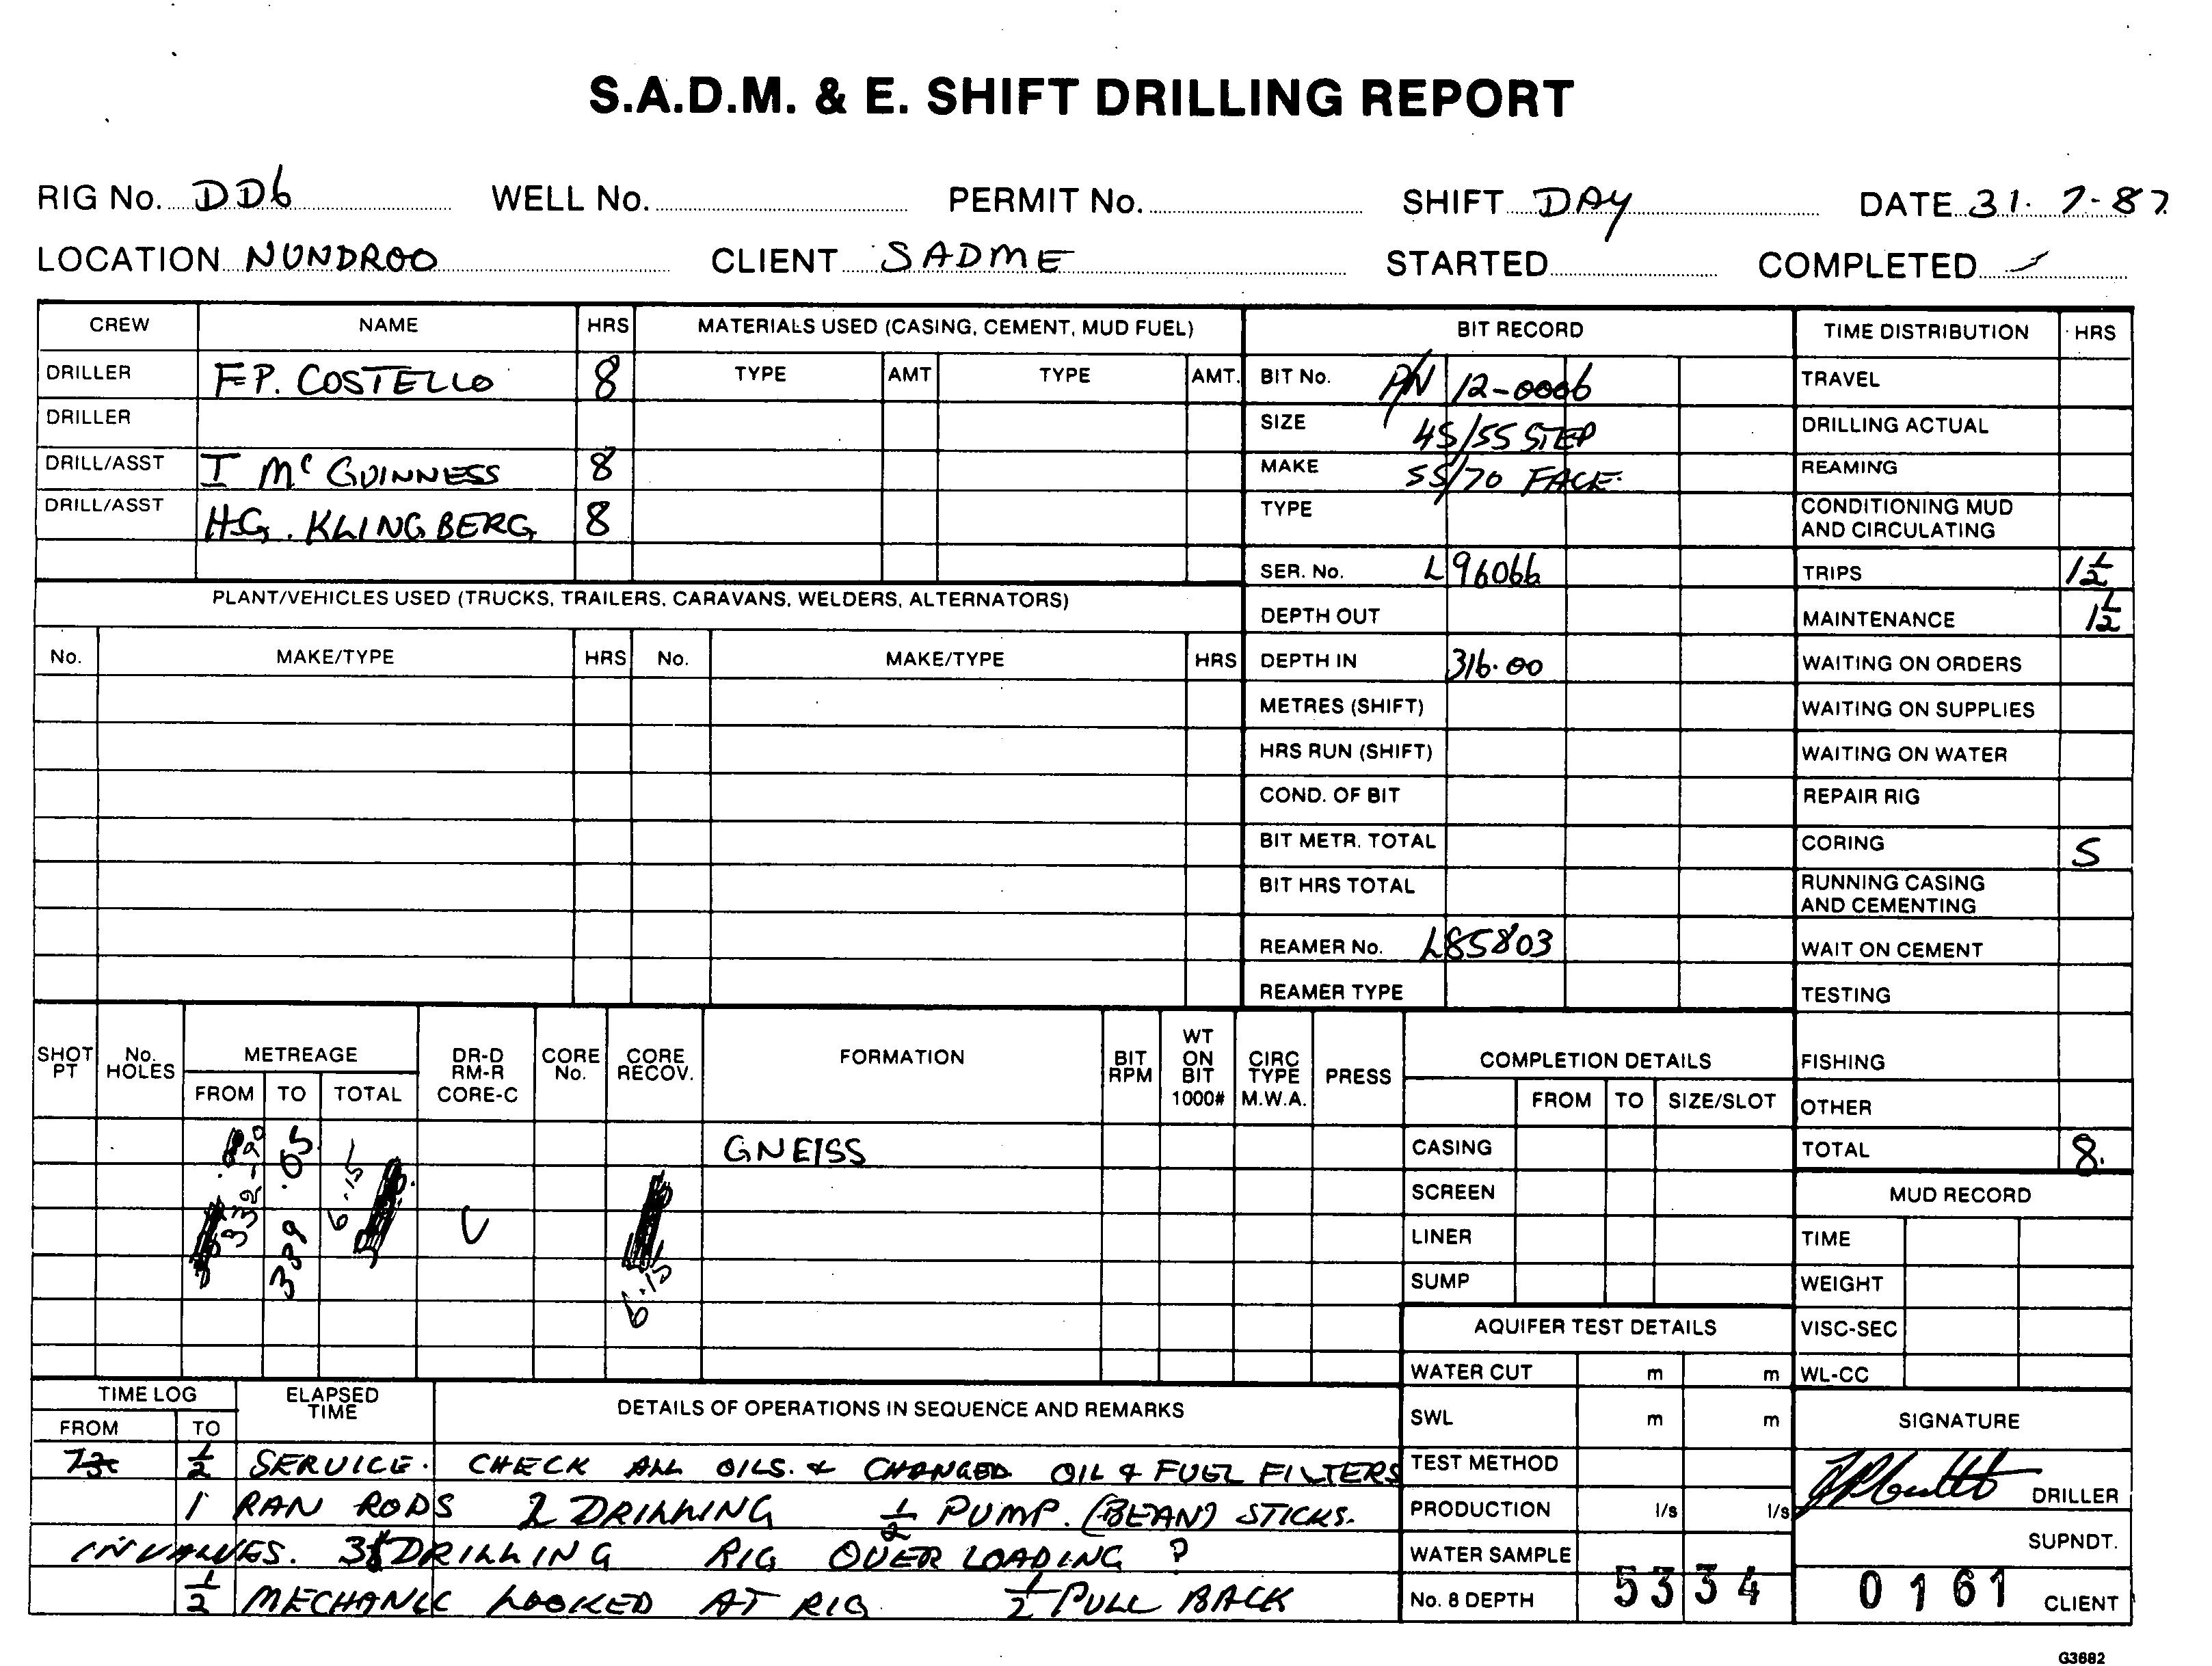 S.A.D.M. & E. SHIFT DRILLING REPORT
RIG No. DD6 WELL No. PERMIT No. SHIFT DAY DATE 31. 7-87
LOCATION NUNDROO CLIENT SADME STARTED COMPLETED
CREW NAME HRS MATERIALS USED (CASING, CEMENT, MUD FUEL) BIT RECORD TIME DISTRIBUTION HRS
DRILLER F.P. COSTELLO 8 TYPE AMT TYPE AMT. BIT No. P/N 12-0006 TRAVEL
DRILLER SIZE 45/55 STEP DRILLING ACTUAL
DRILL/ASST I Mc GUINNESS 8 MAKE 55/70 FACE. REAMING
DRILL/ASST H.G. KLINGBERG 8 TYPE CONDITIONING MUD
AND CIRCULATING
SER. No. L96066 TRIPS 1½
PLANT/VEHICLES USED (TRUCKS, TRAILERS, CARAVANS, WELDERS, ALTERNATORS)
DEPTH OUT MAINTENANCE 1½
No. MAKE/TYPE HRS No. MAKE/TYPE HRS DEPTH IN 316.00 WAITING ON ORDERS
METRES (SHIFT) WAITING ON SUPPLIES
HRS RUN (SHIFT) WAITING ON WATER
COND. OF BIT REPAIR RIG
BIT METR. TOTAL CORING 5
BIT HRS TOTAL RUNNING CASING
AND CEMENTING
REAMER No. L85803 WAIT ON CEMENT
REAMER TYPE TESTING
SHOT PT No. HOLES METREAGE DR-D RM-R CORE-C CORE No. CORE RECOV. FORMATION BIT RPM WT ON BIT 1000# CIRC TYPE M.W.A. PRESS COMPLETION DETAILS FISHING
FROM TO TOTAL FROM TO SIZE/SLOT OTHER
332.90 339.05 6.15 6.15 GNEISS CASING TOTAL 8.
SCREEN MUD RECORD
LINER TIME
SUMP WEIGHT
AQUIFER TEST DETAILS VISC-SEC
WATER CUT m m WL-CC
TIME LOG ELAPSED TIME DETAILS OF OPERATIONS IN SEQUENCE AND REMARKS SWL m m SIGNATURE
FROM TO
730 ½ SERVICE. CHECK ALL OILS. & CHANGED OIL & FUEL FILTERS TEST METHOD
1 RAN RODS 2 DRILLING ½ PUMP. (BEAN) STICKS. PRODUCTION l/s l/s DRILLER
IN VALVES. DRILLING RIG OVER LOADING ? WATER SAMPLE SUPNDT.
½ MECHANIC LOOKED AT RIG ½ PULL BACK No. 8 DEPTH 5334 0161 CLIENT
G3682